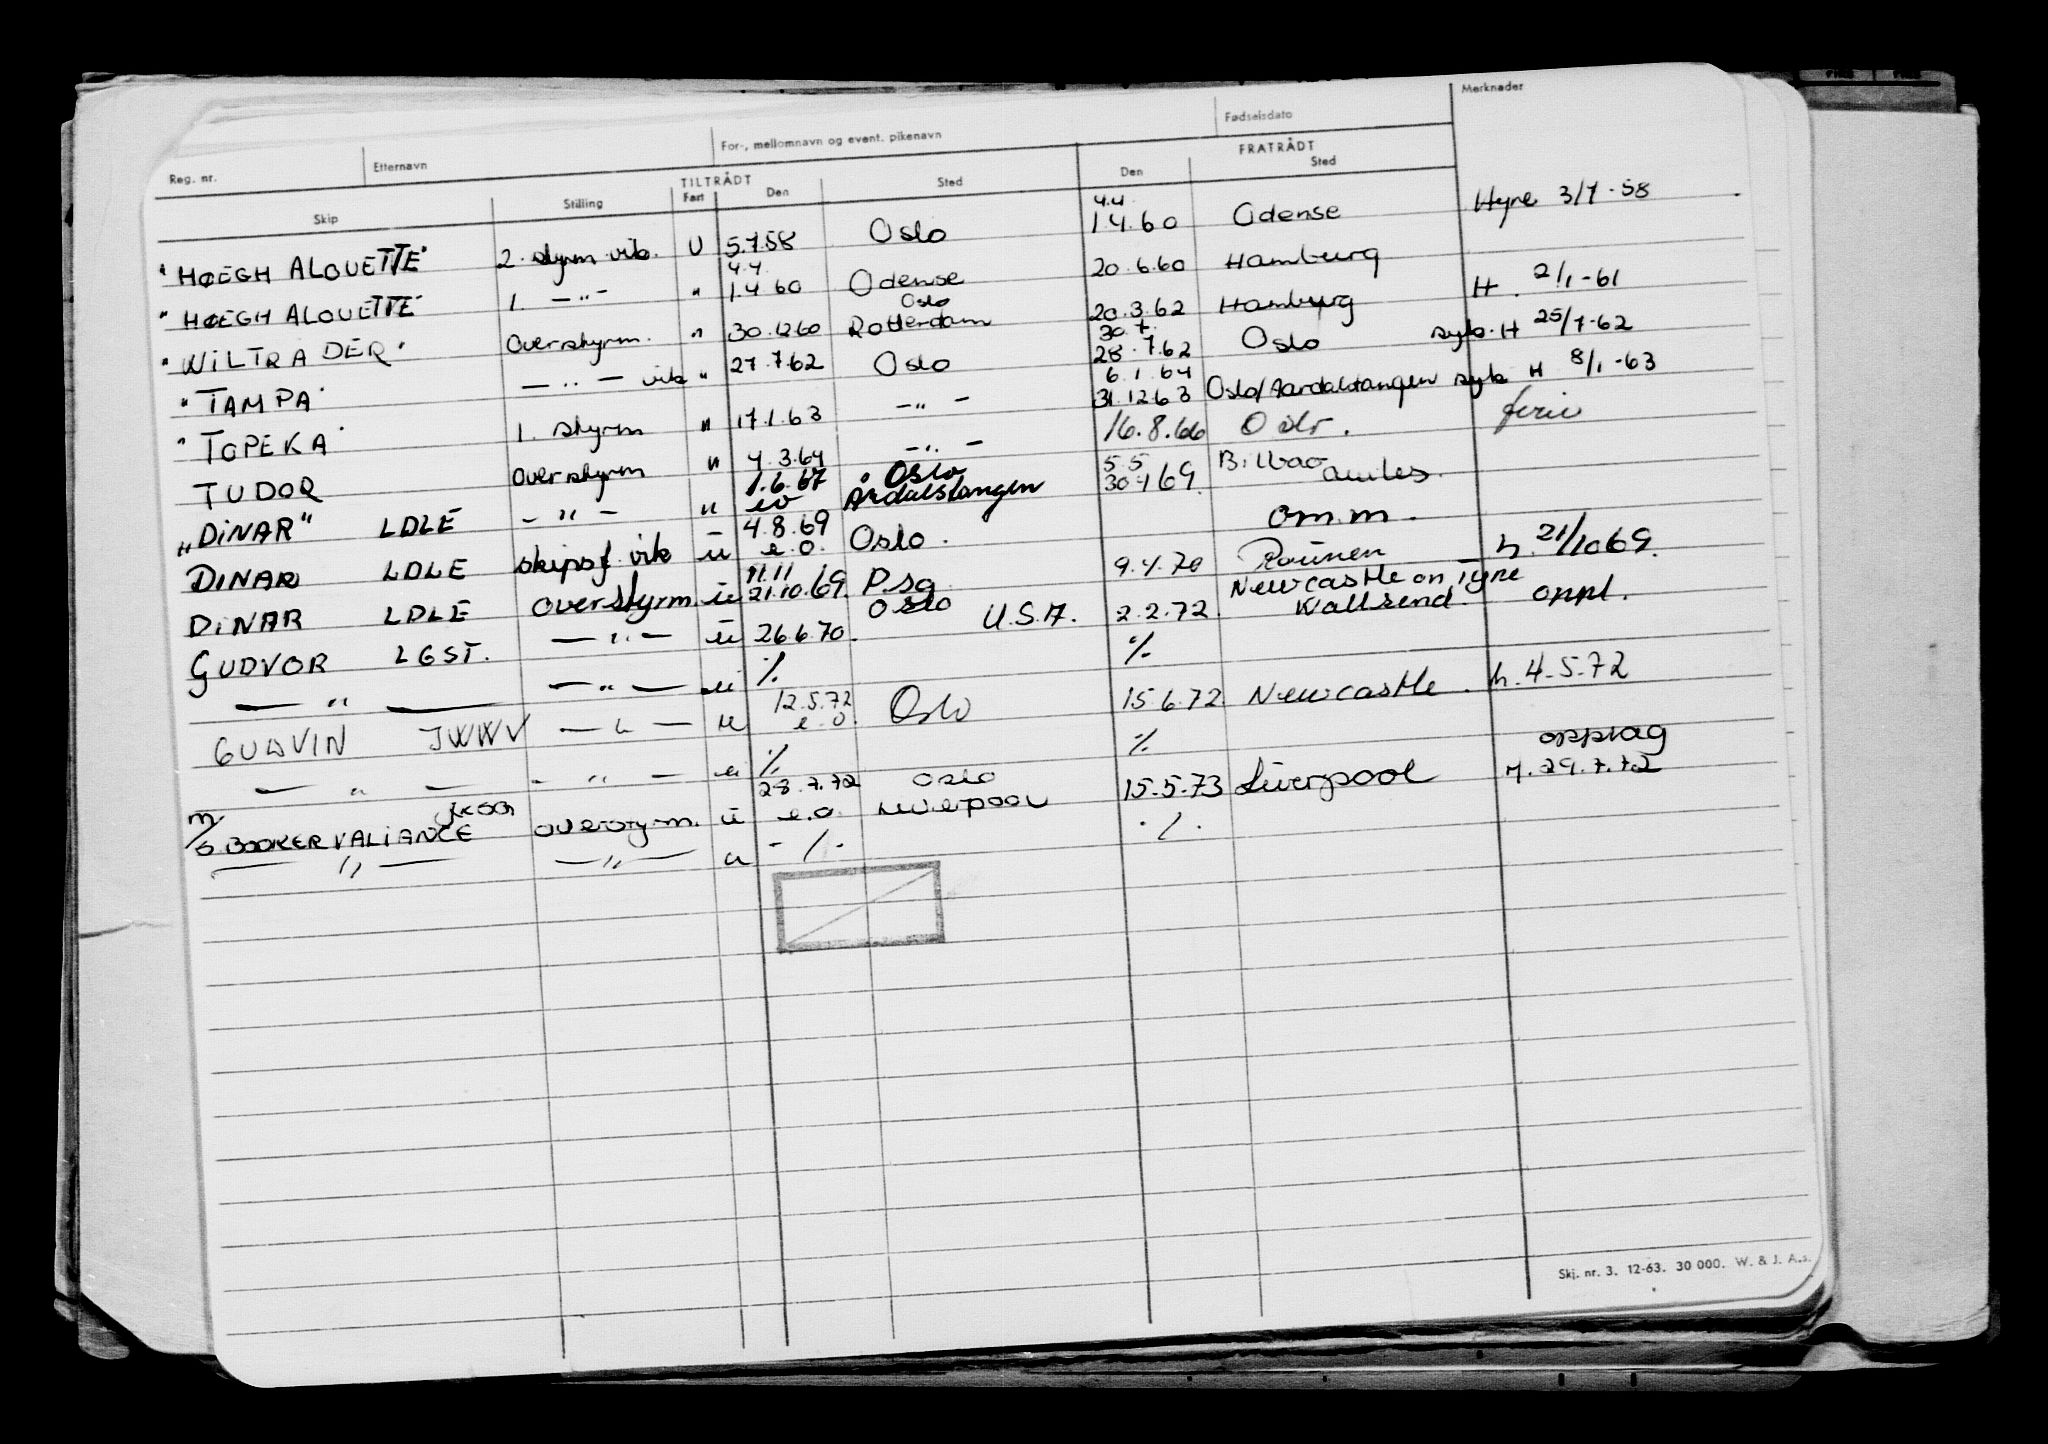 Reg. nr. Etternavn For-, mellomnavn og event. pikenavn Fødselsdato Merknader
TILTRÅDT FRATRÅDT
Skip Stilling Fart Den Sted Den Sted
"HØEGH ALOUETTE" 2. styrm vik. U 5.7.58 Oslo 4.4. 1.4.60 Odense Hyre 3/7-58
"HØEGH ALOUETTE" 1. -"- " 4.4. 1.4.60 Odense 20.6.60 Hamburg
"WILTRADER" Overstyrm. " 30.12.60 Oslo Rotterdam 20.3.62 Hamburg H. 2/1-61
"TAMPA" -"- vik " 27.7.62 Oslo 30.7. 28.7.62 Oslo syk. H 25/7-62
"TOPEKA" 1. styrm " 17.1.63 -"- 6.1.64 31.12.63 Oslo/Aardalstangen syk H 8/1-63
TUDOR Overstyrm " 4.3.64 -"- 16.8.66 ferie
"DINAR" LDLE -"- " 1.6.67 Oslo Årdalstangen 5.5 Bilbao
DINAR LDLE skipsf. vik u 4.8.69 e.o. Oslo. om.m.
DINAR LDLE overstyrm. u 11.11 21.10.69. P.sg. Oslo 9.4.70 h. 21/10 69.
GUDVOR LGST. -"- u 26.6.70. U.S.A. 2.2.72. Newcastle on Tyne Wallsend. oppl.
-"- -"- u ./. ./.
GUDVIN JWWV -"- u 12.5.72 e.o. Oslo 15.6.72. Newcastle. h. 4.5.72
-"- -"- u ./. ./. opplag
m/s BOOKER VALIANCE overstyrm. u 28.7.72 e.o. Oslo Liverpool 15.5.73 Liverpool 29.7.72
-"- -"- u -/- ./.
Skj. nr. 3. 12-63. 30 000. W. & J. A.s.